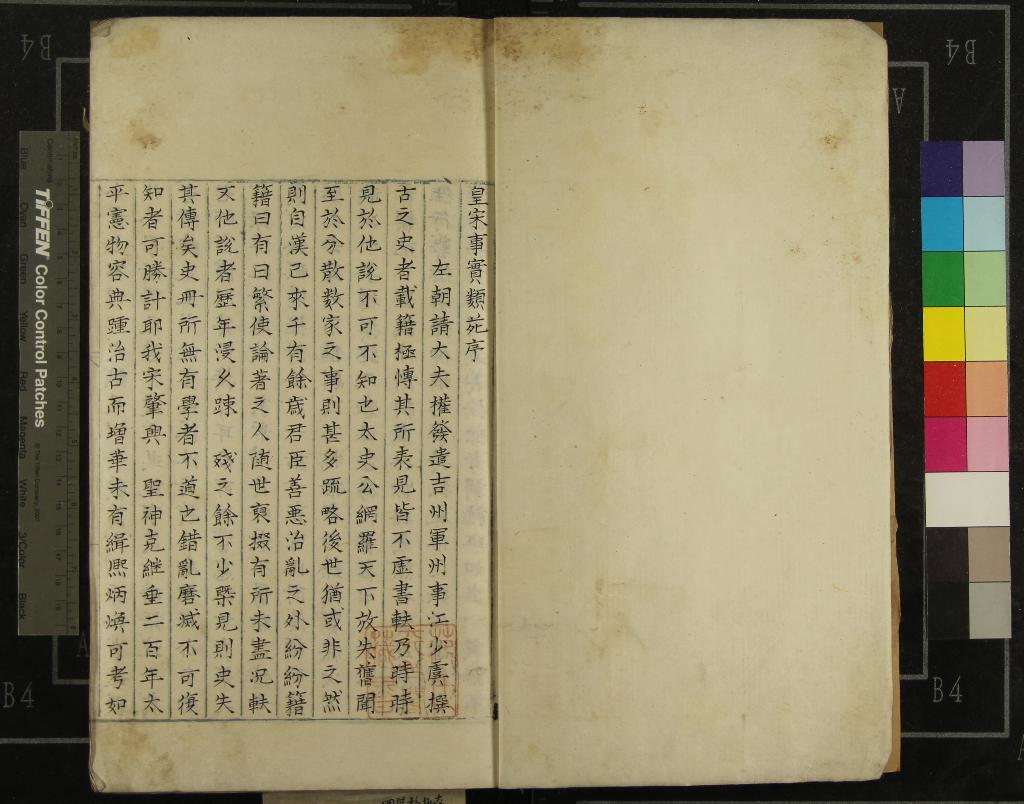 皇宋事實類苑序
左朝請大夫權發遣吉州軍州事江少虞撰
古之史者載籍極愽其所表見皆不虛書軼乃時時
見於他說不可不知也太史公網羅天下放失舊聞
至於分散數家之事則甚多疏略後世猶或非之然
則自漢已來千有餘歲君臣善惡治亂之外紛紛籍
籍曰有曰繁使論著之人随世裒掇有所未盡况軼
於他說者歷年浸久踈 殘之餘不少槩見則史失
其傳矣史冊所無有學者不道之錯亂磨滅不可復
知者可勝計耶我宋肇興 聖神克継垂二百年太
平憲物容典踵治古而增華未有緝熈炳煥可考如
TIFFEN Color Control Patches
© The Tiffen Company, 2007
Centimetres
Blue Cyan Green Yellow Red Magenta White 3/Color Black
B4
B4
B4
B4
A
A